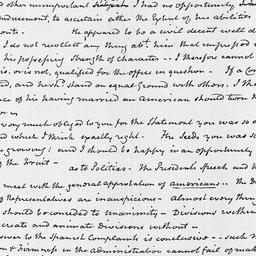 other unimportant I had no opportunity,
inducement, to ascertain either the extent of his abilities
He appeared to be a civil decent well d
I do not recollect any thing abt. him that impressed
his possessing strength of character -- I therefore cannot
is, or is not, qualified for the office in question - If a
ted, and wch. stand on equal ground with others, I th
ce of his having married an American should turn
very much obliged to you for the Statement you was so
and which I think exactly right. The Seeds you was s
growing; and I should be happy in an opportunity
the Fruit -
as to Politics - The Presidents Speech and
meet with the general approbation of Americans -- the
Representatives are inauspicious - Almost every thin
should be conceded to Unanimity - Divisions within
create and animate Divisions without -
swer to the Spanish Complaints is conclusive -- such
& Firmness in the Administration cannot fail of mak